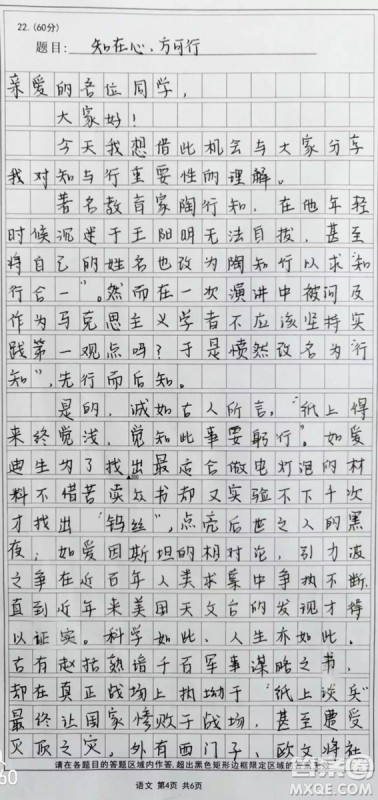 22. (60分)
题目: 知在心、方可行
亲爱的各位同学,
大家好!
今天我想借此机会与大家分享
我对知与行重要性的理解。
著名教育家陶行知,在他年轻
时候沉迷于王阳明无法自拔,甚至
将自己的姓名也改为陶知行以求“知
行合一”。然而在一次演讲中被问及
作为马克思主义学者不应该坚持实
践第一观点吗?于是愤然改名为“行
知”,先行而后知。
是的,诚如古人所言,“纸上得
来终觉浅,觉知此事要躬行”。如爱
迪生为了找出最适合做电灯泡的材
料不惜苦读众书却又实验不下千次
才找出“钨丝”,点亮后世之人的黑
夜;如爱因斯坦的相对论,引力波
之争在近百年人类求索中争执不断,
直到近年来美国天文台的发现才得
以证实。科学如此,人生亦如此,
古有赵括熟谙千百军事谋略之书,
却在真正战场上拘泥于“纸上谈兵”
最终让国家惨败于战场,甚至遭受
灭顶之灾,外有西门子、欧文将社
请在各题目的答题区域内作答,超出黑色矩形边框限定区域的
语文 第4页 共6页
60
答案圈
MXQE.COM